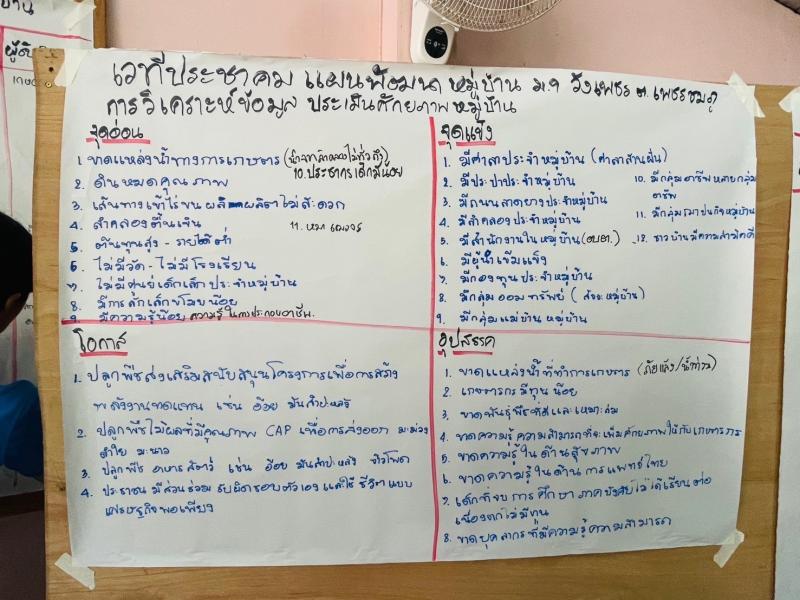 เวทีประชาคม แผนพัฒนา หมู่บ้าน ม.๑ วังเพชร ต.เพชรชมภู
การวิเคราะห์ข้อมูล ประเมินศักยภาพ หมู่บ้าน
จุดอ่อน
1. ขาดแหล่งน้ำทางการเกษตร
2. ดินหมดคุณภาพ
3. เส้นทางเข้าไร่ขนผลผลิตไม่สะดวก
4. ลำคลองตื้นเขิน
5. ต้นทุนสูง - รายได้ต่ำ
6. ไม่มีวัด - ไม่มีโรงเรียน
7. ไม่มีศูนย์เด็กเล็กประจำหมู่บ้าน
8. มีการลักเล็กขโมยน้อย
9. มีความรู้น้อย ความรู้ในการประกอบอาชีพ.
10. ประชากรเด็กมีน้อย
11.
จุดแข็ง
1. มีศาลาประจำหมู่บ้าน (ศาลาล้านฝัน)
2. มีประปาประจำหมู่บ้าน
3. มีถนนลาดยางประจำหมู่บ้าน
4. มีลำคลองประจำหมู่บ้าน
5. มีสำนักงานในหมู่บ้าน (อบต.)
6. มีผู้นำเข้มแข็ง
7. มีกองทุนประจำหมู่บ้าน
8. มีกลุ่มออมทรัพย์ (สัจจะหมู่บ้าน)
9. มีกลุ่มแม่บ้าน หมู่บ้าน
10. มีกลุ่มอาชีพหลายกลุ่ม
อาชีพ
11. มีกลุ่มฌาปนกิจหมู่บ้าน
12. ชาวบ้านมีความสามัคคี
โอกาส
1. ปลูกพืชส่งเสริมสนับสนุนโครงการเพื่อการสร้าง
พลังงานทดแทน เช่น อ้อย มันสำปะหลัง
2. ปลูกพืชไม้ผลที่มีคุณภาพ CAP เพื่อการส่งออก มะม่วง
ลำใย มะนาว
3. ปลูกพืช อาหารสัตว์ เช่น อ้อย มันสำปะหลัง ข้าวโพด
4. ประชาชน มีส่วนร่วม รับผิดชอบตัวเอง และใช้ ชีวิตแบบ
เศรษฐกิจพอเพียง
อุปสรรค
1. ขาดแหล่งน้ำที่ทำการเกษตร (ภัยแล้ง/น้ำท่วม)
2. เกษตรกรมีทุนน้อย
3. ขาดพันธุ์พืชที่ดีและเหมาะสม
4. ขาดความรู้ความสามารถที่จะเพิ่มศักยภาพให้กับเกษตรกร
5. ขาดความรู้ในด้านสุขภาพ
6. ขาดความรู้ในด้านการแพทย์ไทย
7. เด็กที่จบการศึกษาภาคบังคับไม่ได้เรียนต่อ
เนื่องจากไม่มีทุน
8. ขาดบุคลากรที่มีความรู้ความสามารถ